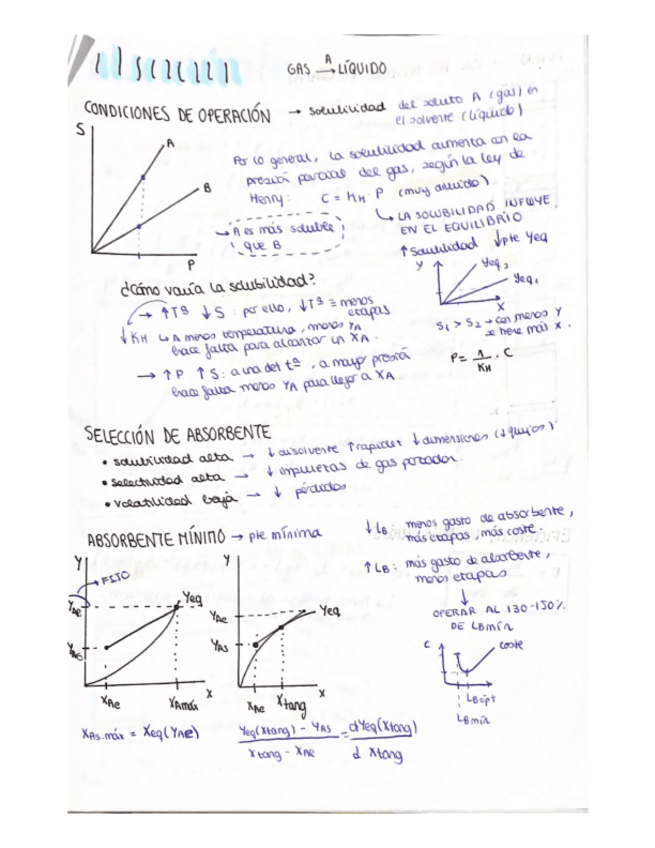 absorción
GAS →A LÍQUIDO
CONDICIONES DE OPERACIÓN → solubilidad del soluto A (gas) en
el solvente (líquido)
S
A
B
P
Por lo general, la solubilidad aumenta con la
presión parcial del gas, según la ley de
Henry: C = KH · P (muy diluido)
→ A es más soluble
que B
↳ LA SOLUBILIDAD INFLUYE
EN EL EQUILIBRIO
↑ Solubilidad ↓ pte Yeq
Y
Yeq2
Yeq1
X
S1 > S2 → con menos Y
se tiene más X.
P = 1/KH · C
¿Cómo varía la solubilidad?
→ ↑Tª ↓S: por ello, ↓Tª ≡ menos
etapas
↓KH ↳ A menos temperatura, menos YA
hace falta para alcanzar un XA.
→ ↑P ↑S: a una det tª, a mayor presión
hace falta menos YA para llegar a XA
SELECCIÓN DE ABSORBENTE
• solubilidad alta → ↓ disolvente ↑ rapidez ↓ dimensiones (↓flujos)
• selectividad alta → ↓ impurezas de gas portador.
• volatilidad baja → ↓ pérdidas
ABSORBENTE MÍNIMO → pte mínima
↓LB: menos gasto de absorbente,
más etapas, más coste.
↑LB: más gasto de absorbente,
menos etapas
↓
OPERAR AL 130-150%
DE LBmín
Y
→ FIJO
YAe
YAs
Yeq
XAe
XAmáx
X
Y
YAe
YAs
Yeq
XAe
Xtang
X
C
coste
LBópt
LBmín
XAs.máx = Xeq(YAe)
Yeq(Xtang) - YAs = dYeq(Xtang)
Xtang - XAe d Xtang